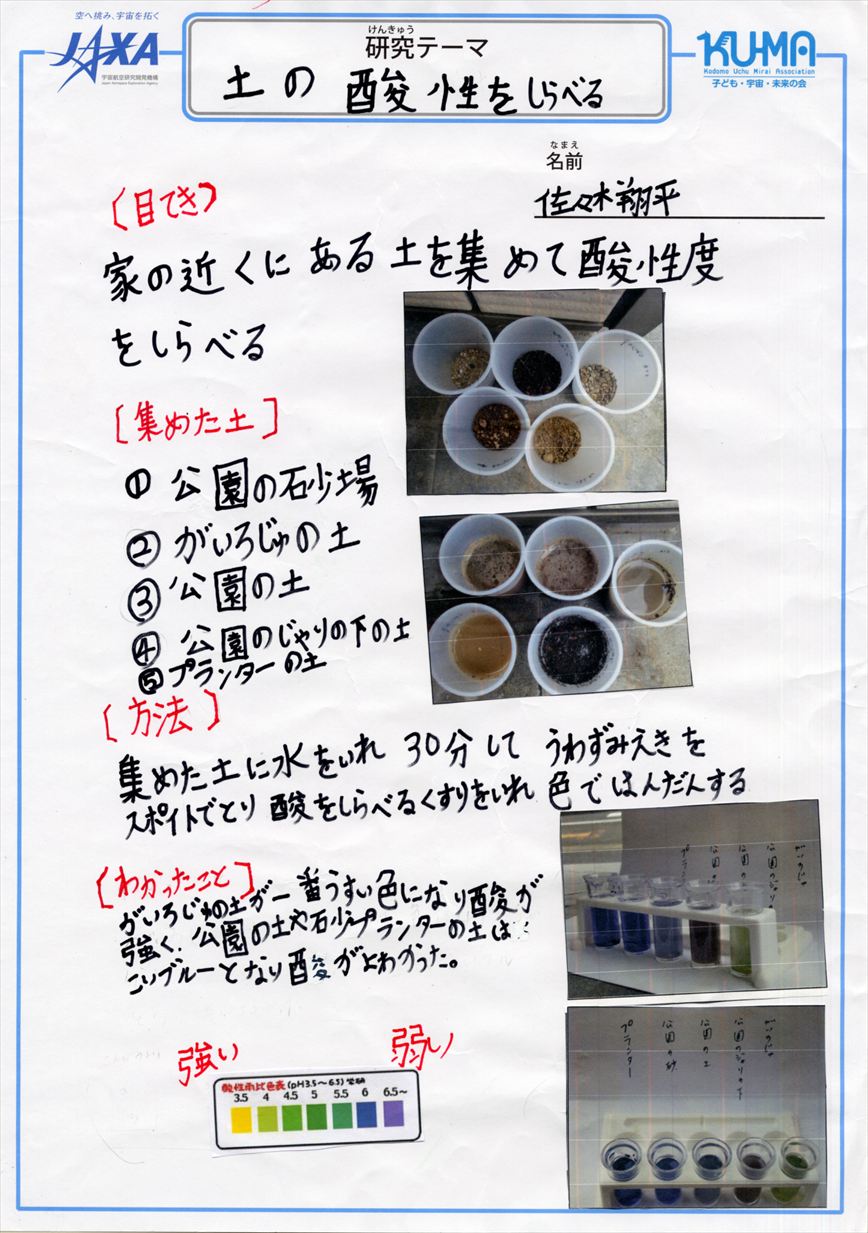 空へ挑み、宇宙を拓く
JAXA
宇宙航空研究開発機構
Japan Aerospace Exploration Agency
けんきゅう
研究テーマ
土の酸性をしらべる
KU-MA
Kodomo Uchu Mirai Association
子ども・宇宙・未来の会
なまえ
名前
佐々木翔平
〔目てき〕
家の近くにある土を集めて酸性度
をしらべる
[集めた土]
① 公園の砂場
② がいろじゅの土
③ 公園の土
④ 公園のじゃりの下の土
⑤ プランターの土
[方法]
集めた土に水をいれ 30分して うわずみえきを
スポイトでとり 酸をしらべるくすりをいれ 色ではんだんする
[わかったこと]
がいろじゅの土が一番うすい色になり酸が
強く、公園の土や砂プランターの土は
こいブルーとなり酸がよわかった。
強い
弱い
酸性雨比色表(pH3.5〜6.5)学研
3.5 4 4.5 5 5.5 6 6.5〜
プランター
公園の砂
公園の土
公園のジャリの下
がいろじゅ